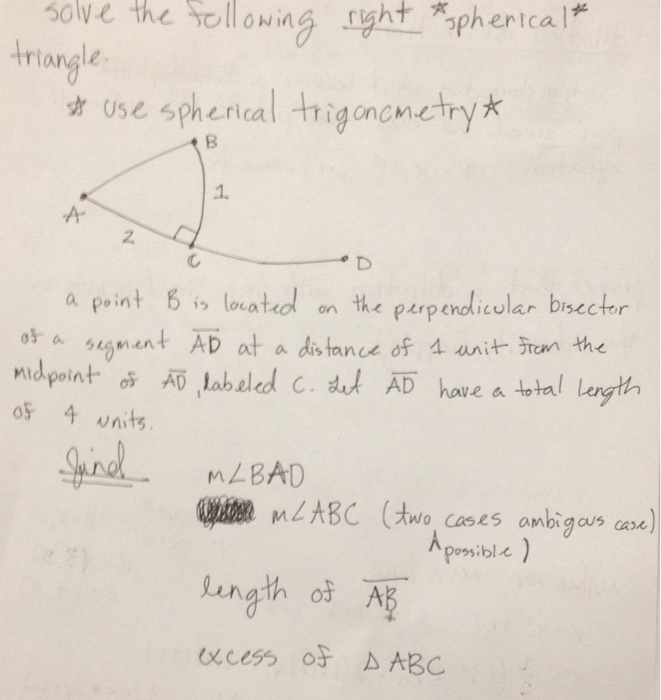 solve the following right *spherical*
triangle.
* use spherical trigonometry *
B
1
A
2
C
D
a point B is located on the perpendicular bisector
of a segment AD at a distance of 1 unit from the
midpoint of AD, labeled C. Let AD have a total length
of 4 units.
find m∠BAD
m∠ABC (two cases ambigous case)
^possible)
length of AB
excess of △ABC